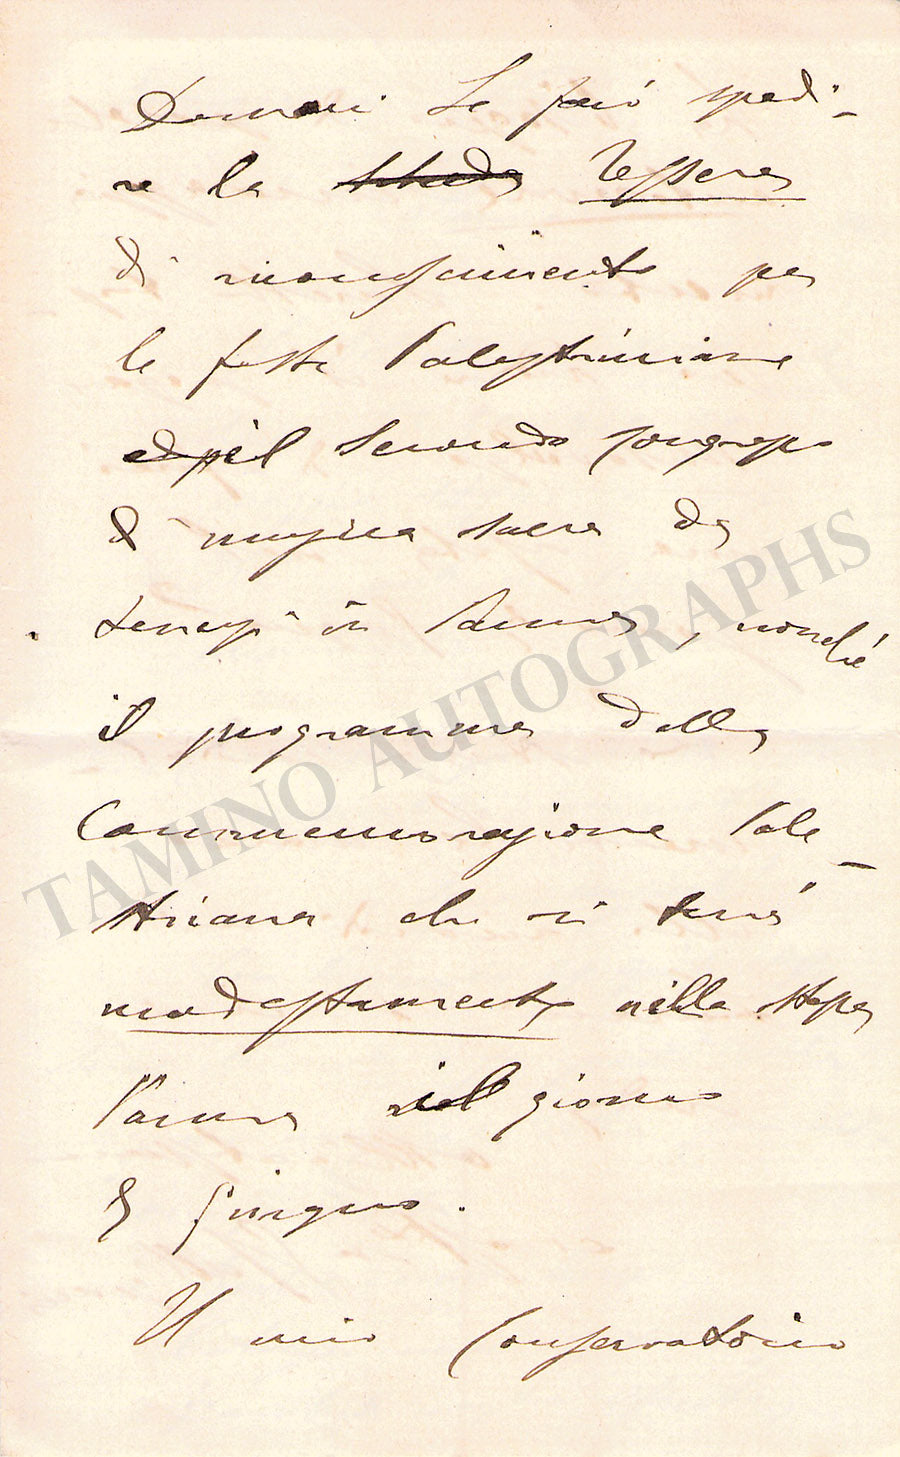 Domani Le farò spedi-
re la scheda Tessera
di riconoscimento per
le feste Palestriniane
ed il Secondo Congresso
di musica sacra da
tenersi in Parma, nonchè
il programma della
Commemorazione Pale-
striniana che si terrà
modestamente nella stessa
Parma il giorno
8 Giugno.
Il mio Conservatorio
TAMINO AUTOGRAPHS